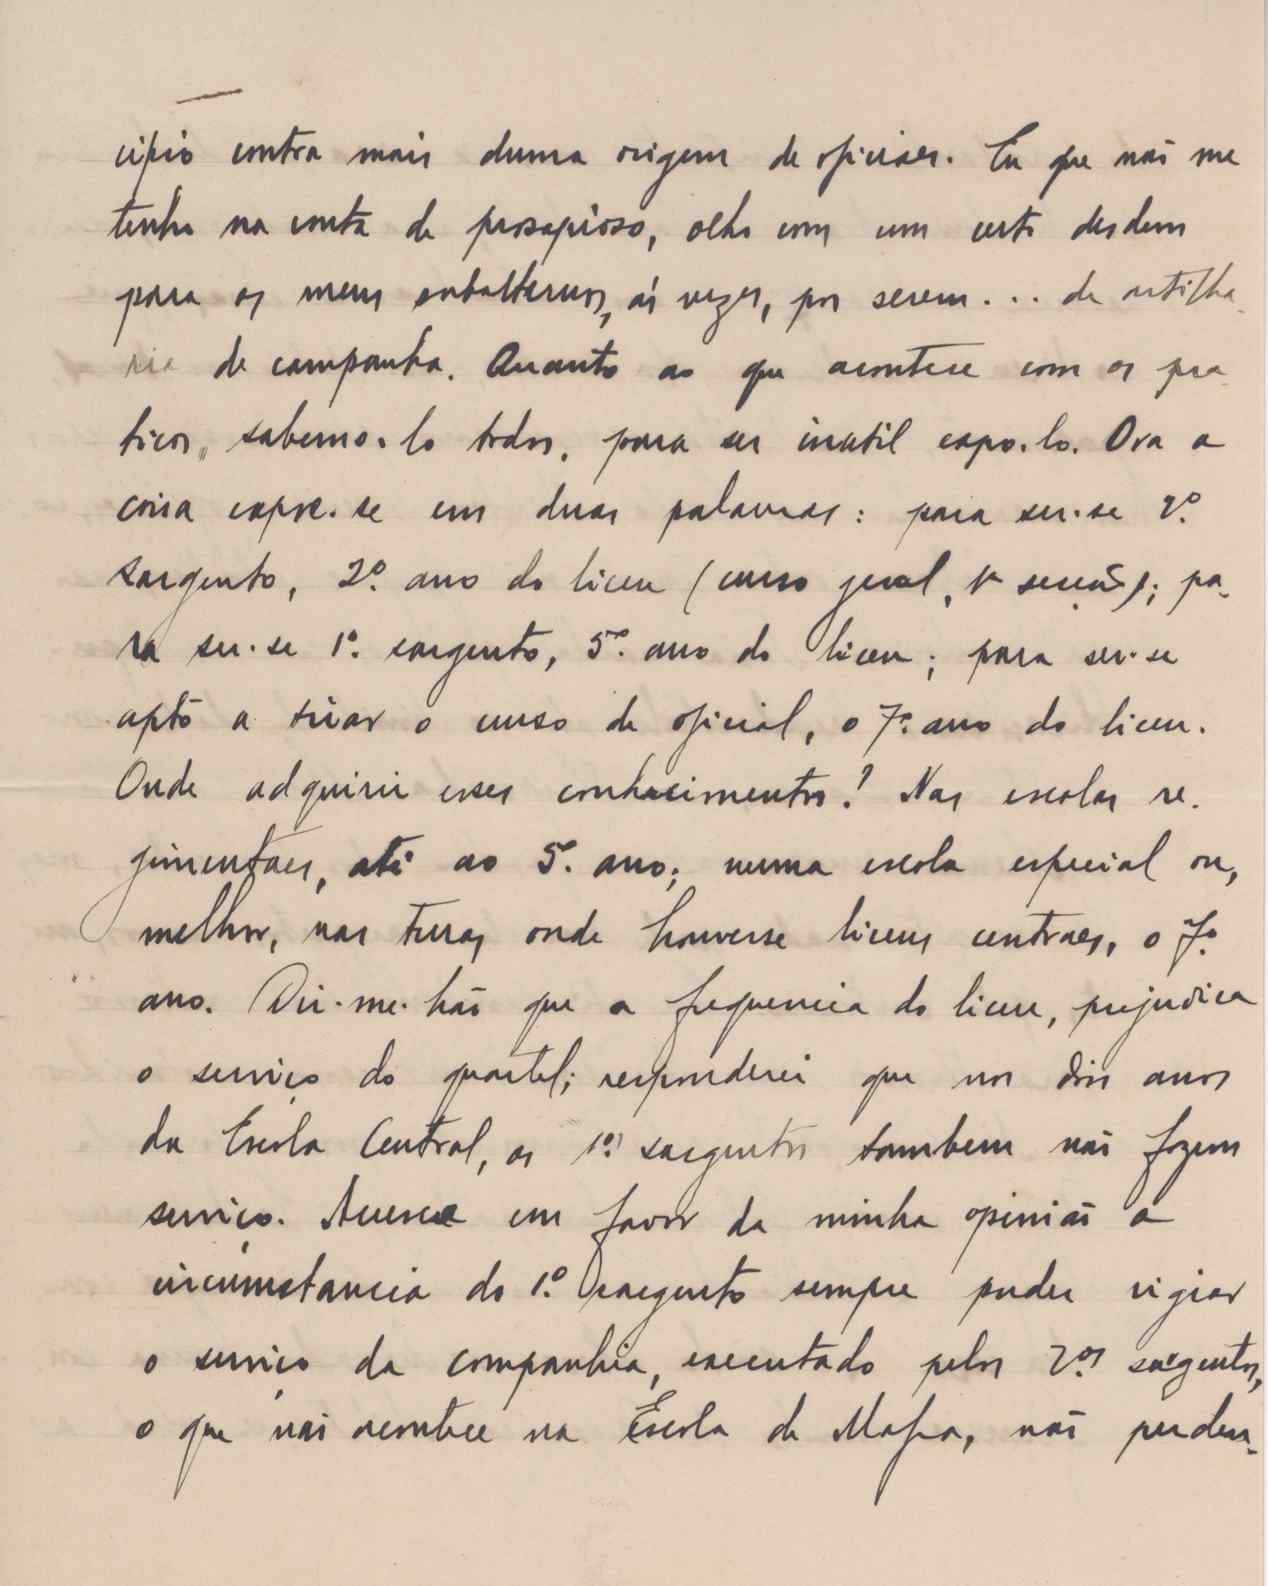 cipio contra mais duma origem de oficiaes. Eu que não me
tenho na conta de prosapioso, olho com um certo desdem
para os meus subalternos, ás vezes, por serem... de artilha-
ria de campanha. Quanto ao que acontece com os pra-
ticos, sabemo-lo todos, para ser inutil expo-lo. Ora a
coisa expõe-se em duas palavras: para ser-se 2º.
sargento, 2º. ano do liceu (curso geral, 1ª secção); pa-
ra ser-se 1º. sargento, 5º. ano do liceu; para ser-se
apto a tirar o curso de oficial, o 7º. ano do liceu.
Onde adquirir esses conhecimentos? Nas escolas re-
gimentaes, até ao 5º. ano; numa escola especial ou,
melhor, nas terras onde houvesse liceus centraes, o 7º.
ano. Dir-me-hão que a frequencia do liceu, prejudica
o serviço do quartel; responderei que nos dois anos
da Escola Central, os 1ºs. sargentos tambem não fazem
serviço. Acresce em favor da minha opinião a
circumstancia do 1º. sargento sempre poder vigiar
o serviço da companhia, executado pelos 2ºs. sargentos,
o que não acontece na Escola de Mafra, não perden-